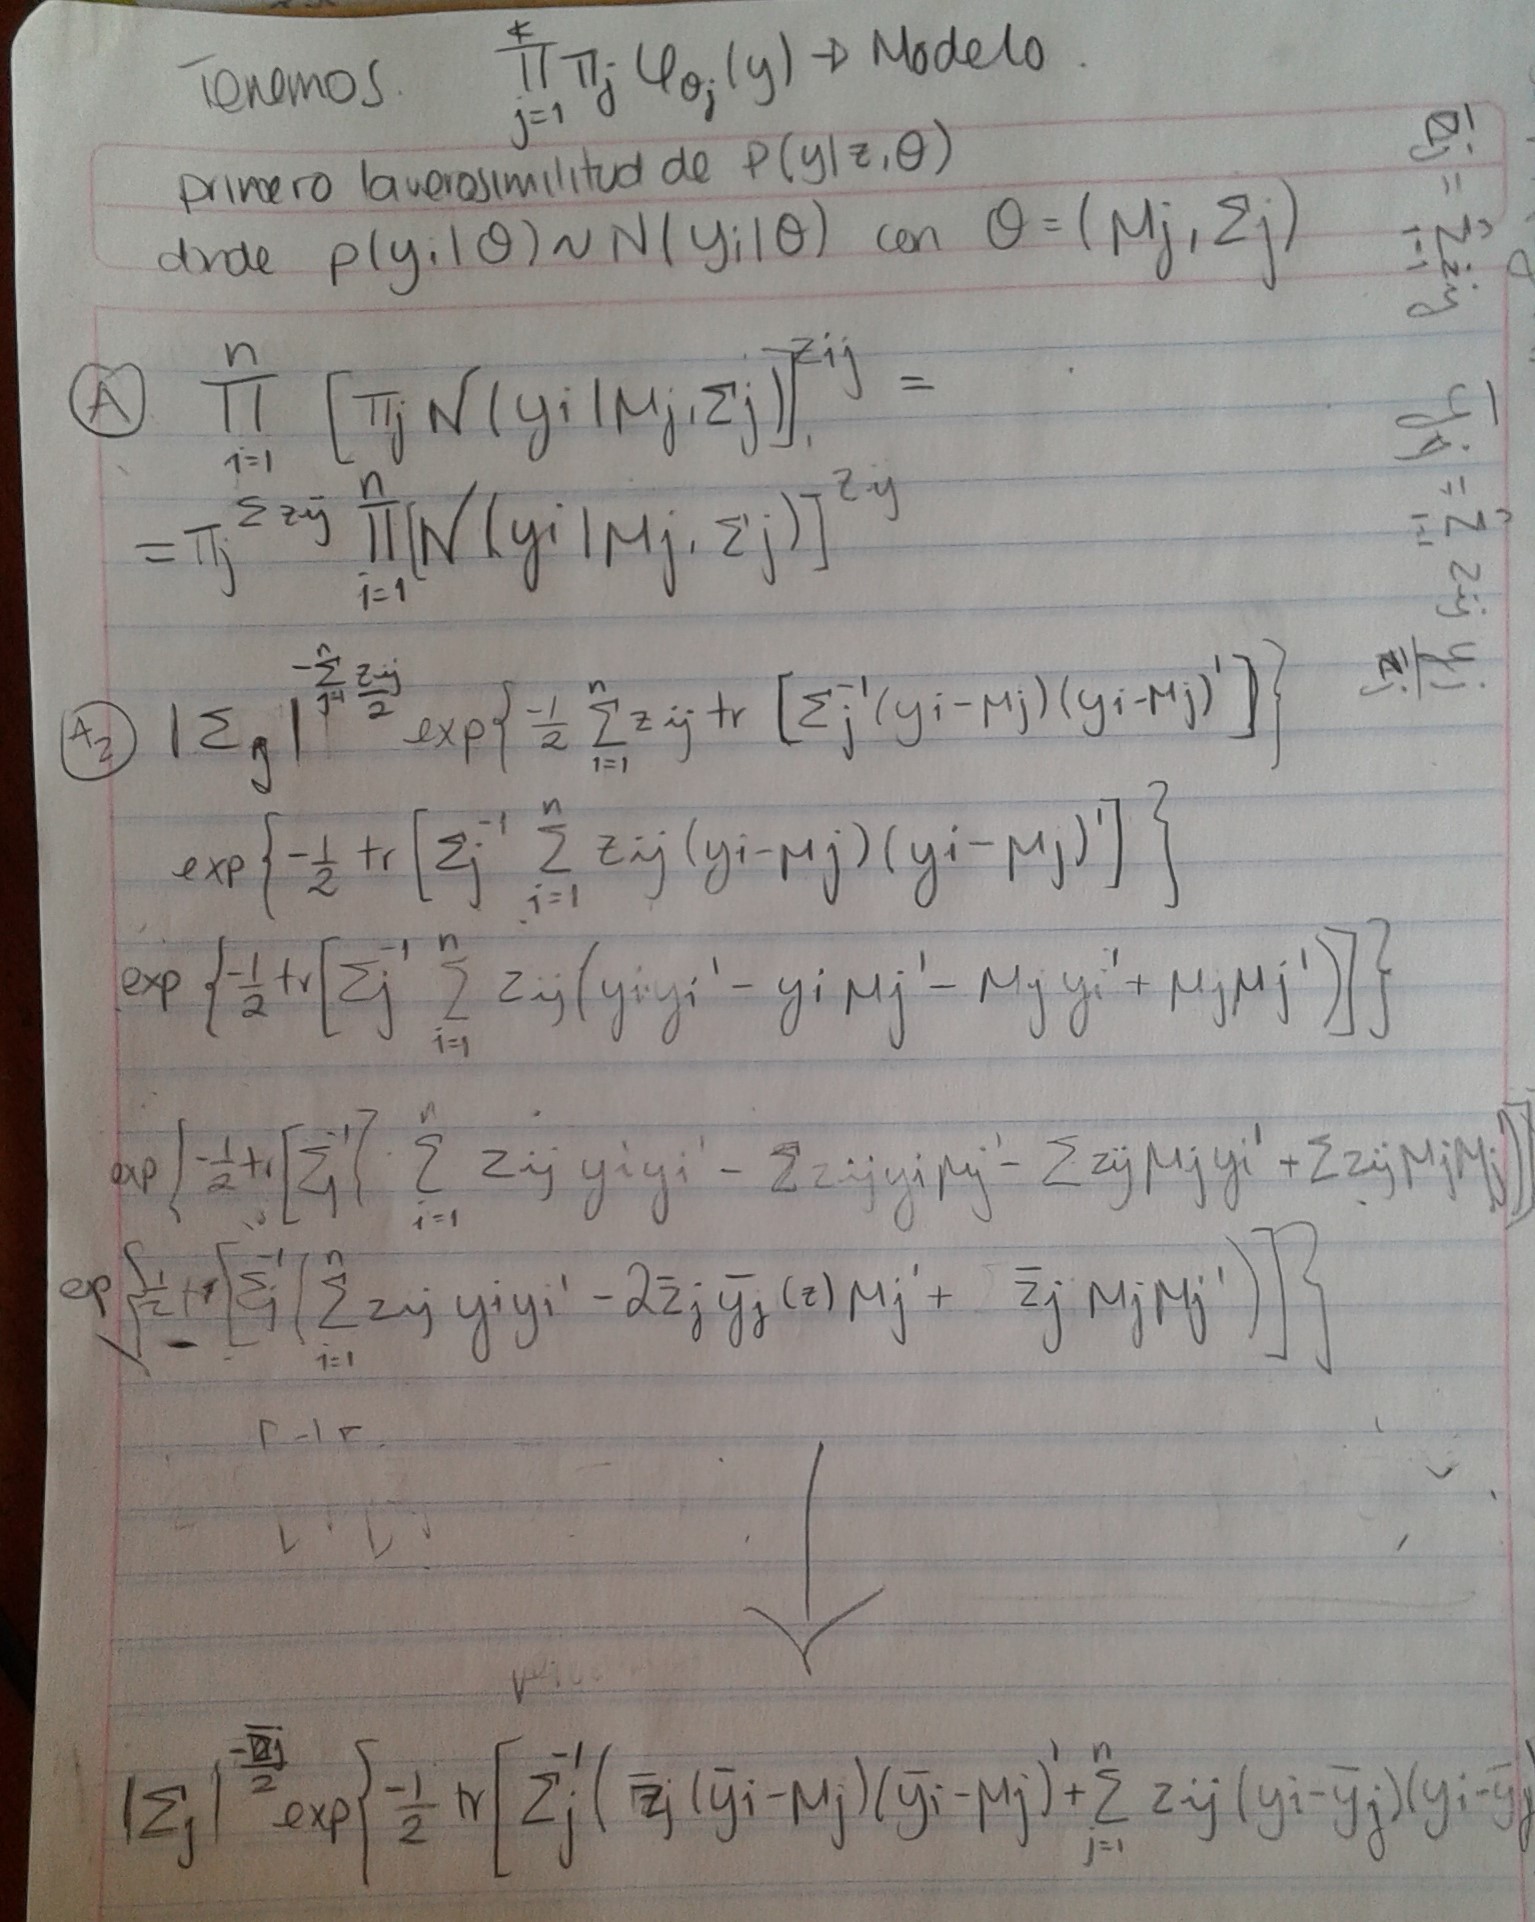 Tenemos. ∏_{j=1}^{k} π_j φ_{θ_j}(y) → Modelo.
primero la verosimilitud de P(y|z,θ)
donde p(yi|θ) ~ N(yi|θ) con θ = (μj, Σj)
(A) ∏_{i=1}^{n} [πj N(yi|μj, Σj)]^{zij} =
= πj^{Σ zij} ∏_{i=1}^{n} [N(yi|μj, Σj)]^{zij}
(A2) |Σj|^{-Σ^{n} zij/2} exp{-1/2 Σ_{i=1}^{n} zij tr [Σj^{-1}(yi-μj)(yi-μj)']}
exp{-1/2 tr[Σj^{-1} Σ_{i=1}^{n} zij (yi-μj)(yi-μj)']}
exp{-1/2 tr[Σj^{-1} Σ_{i=1}^{n} zij (yiyi' - yiμj' - μjyi' + μjμj')]}
exp{-1/2 tr[Σj^{-1} { Σ_{i=1}^{n} zij yiyi' - Σzijyiμj' - Σzijμjyi' + Σzijμjμj)]
exp{-1/2 tr[Σj^{-1}(Σ_{i=1}^{n} zij yiyi' - 2z̄j ȳj(z)μj' + z̄j μjμj')]}
|Σj|^{-z̄j/2} exp{-1/2 tr[Σj^{-1}(z̄j(ȳi-μj)(ȳi-μj)' + Σ_{j=1}^{n} zij(yi-ȳj)(yi-ȳj
z̄j = Σ_{i=1}^{n} zij
ȳj = Σ_{i=1}^{n} zij yj/z̄j